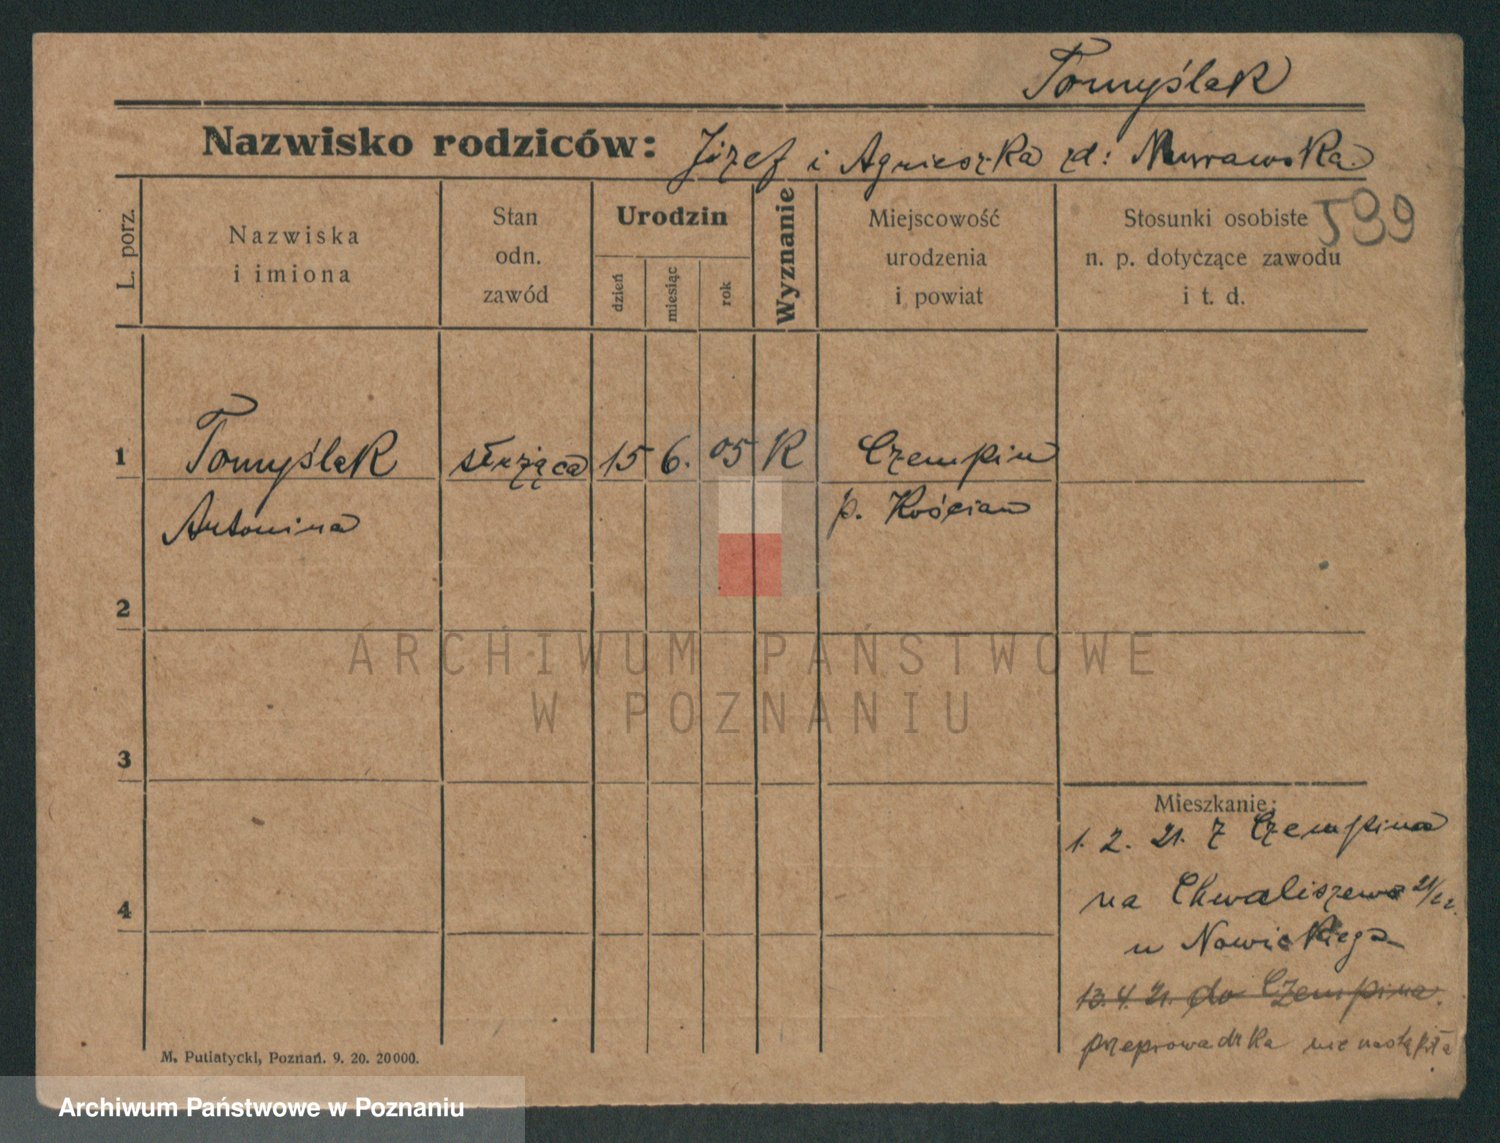 Tomyślak
Nazwisko rodziców: Józef i Agnieszka zd: Murawska
599
L. porz.
Nazwiska
i imiona
Stan
odn.
zawód
Urodzin
dzień
miesiąc
rok
Wyznanie
Miejscowość
urodzenia
i powiat
Stosunki osobiste
n. p. dotyczące zawodu
i t. d.
1 Tomyślak służąca 15 6. 05 K Czempin
Antonina p. Kościan
2
3
4
ARCHIWUM PAŃSTWOWE
W POZNANIU
Mieszkanie:
1. 2. 21. z Czempina
na Chwaliszewo 21/22.
u Nowickiego
13. 4. 21. do Czempina.
przeprowadzka nie nastąpiła
M. Putiatycki, Poznań. 9. 20. 20000.
Archiwum Państwowe w Poznaniu